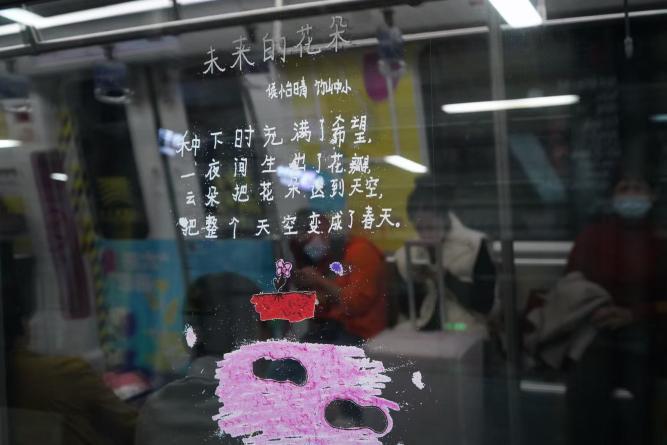 未来的花朵
侯小白晴 竹山中小
种下时充满了希望,
一夜间生出了花瓢
云朵把花朵送到天空,
把整个天空变成了春天。